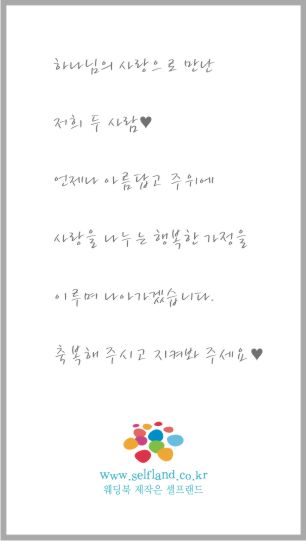 하나님의 사랑으로 만난
저희 두 사람♥
언제나 아름답고 주위에
사랑을 나누는 행복한 가정을
이루며 나아가겠습니다.
축복해 주시고 지켜봐 주세요♥
www.selfland.co.kr
웨딩북 제작은 셀프랜드